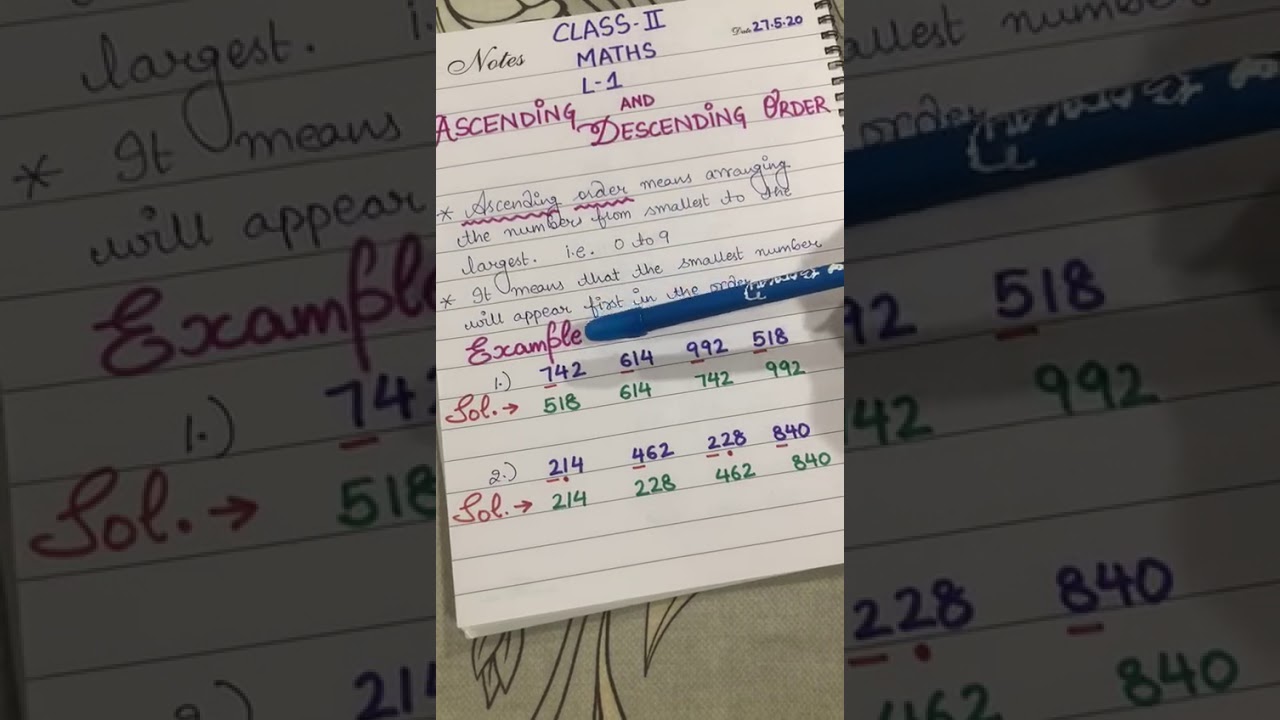 Notes
CLASS-II
Date 27.5.20
MATHS
L-1
ASCENDING AND DESCENDING ORDER
* Ascending order means arranging
the number from smallest to the
largest. i.e. 0 to 9
* It means that the smallest number
will appear first in the order
Example
1.) 742 614 992 518
Sol.→ 518 614 742 992
2.) 214 462 228 840
Sol.→ 214 228 462 840